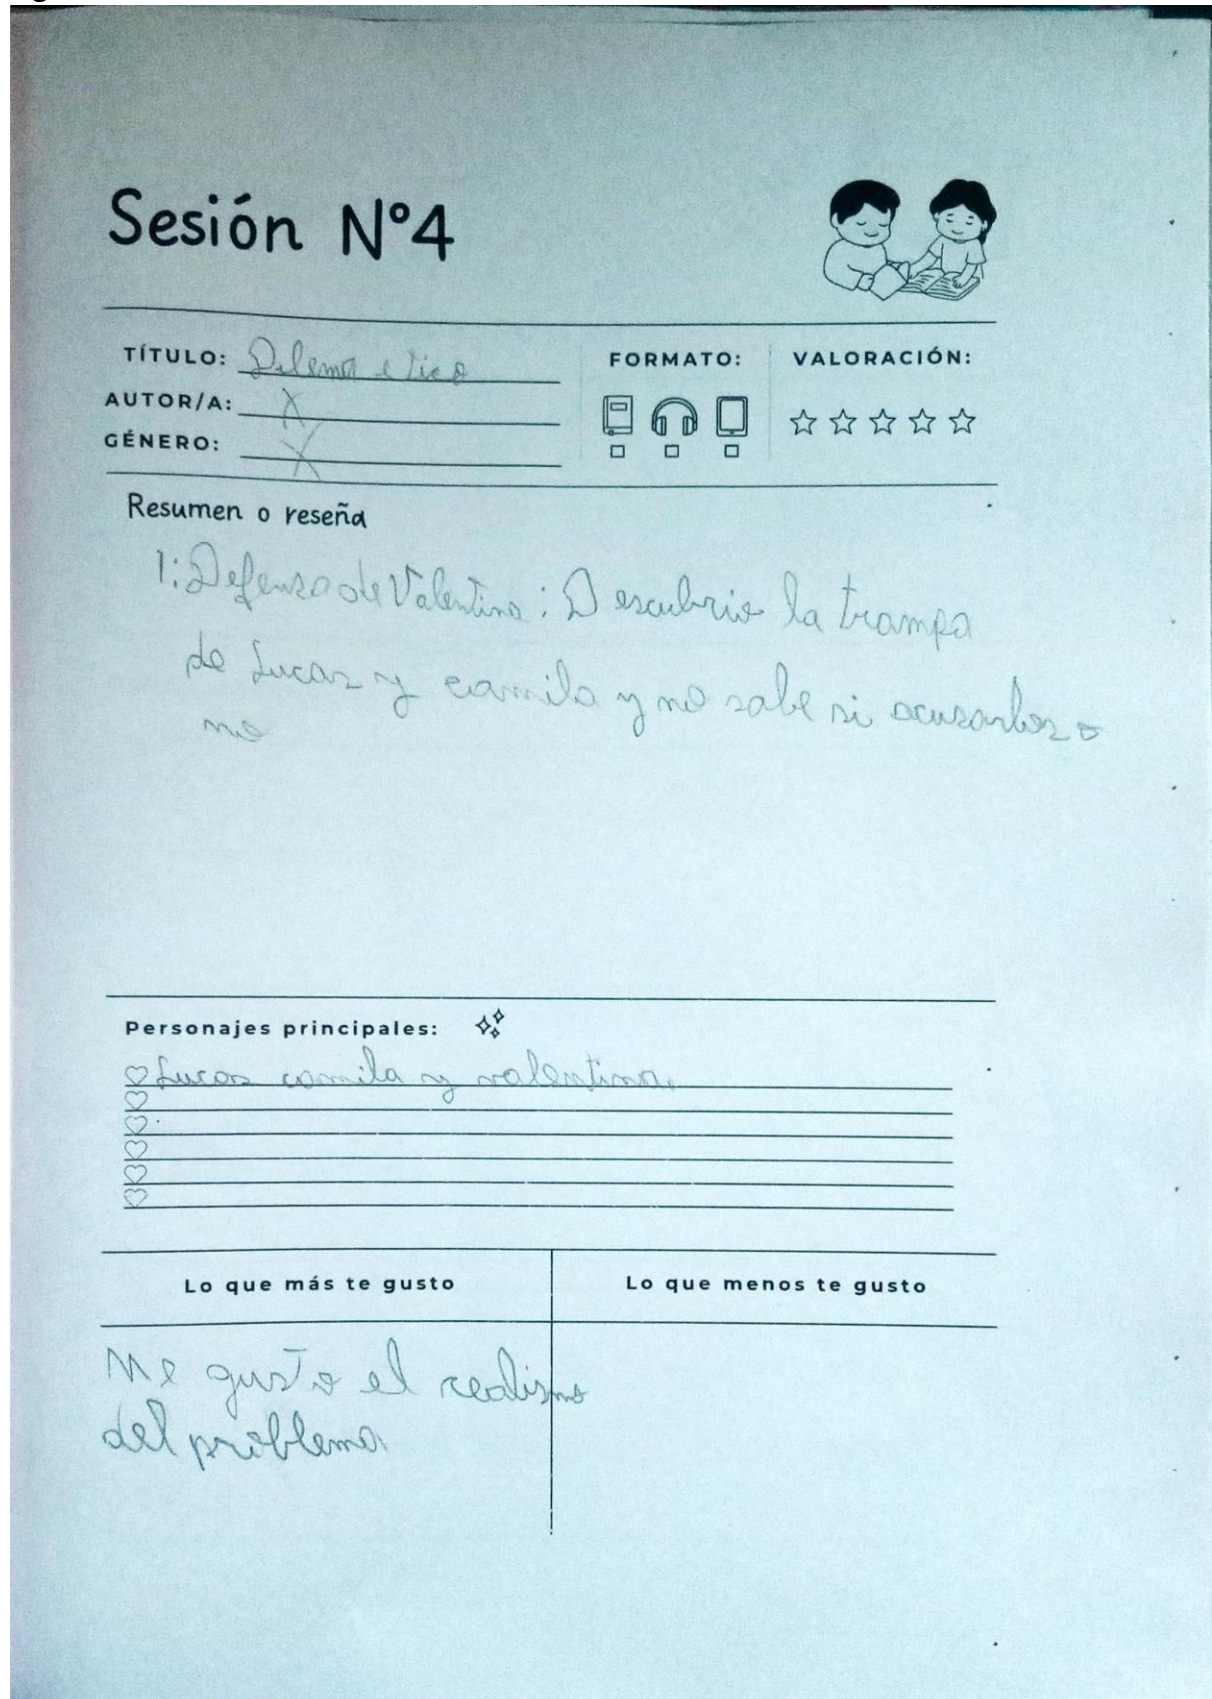 Sesión N°4
TÍTULO: Dilema etico
FORMATO:
VALORACIÓN:
AUTOR/A: X
GÉNERO: X
Resumen o reseña
1: Defensa de Valentina: Descubrio la trampa
de Lucas y camila y no sabe si acusarlos o
no
Personajes principales:
Lucas camila y valentina.
Lo que más te gusto
Lo que menos te gusto
Me gusto el realismo
del problema